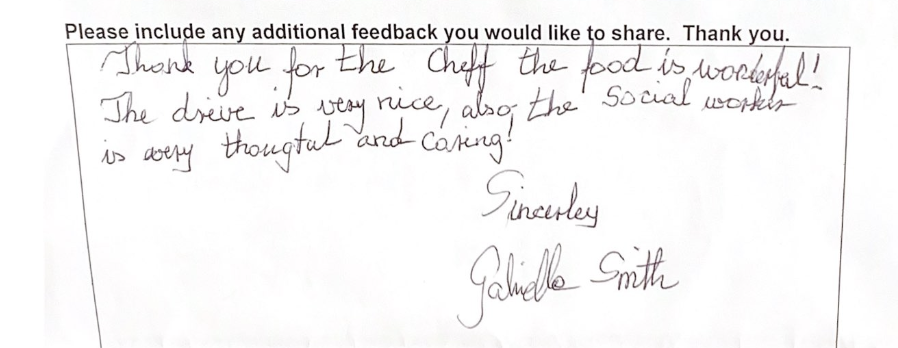 Please include any additional feedback you would like to share. Thank you.
Thank you for the Cheff the food is wonderful!
The drive is very nice, also, the Social worker
is very thougtul and Caring!
Sincerley
Gabriella Smith